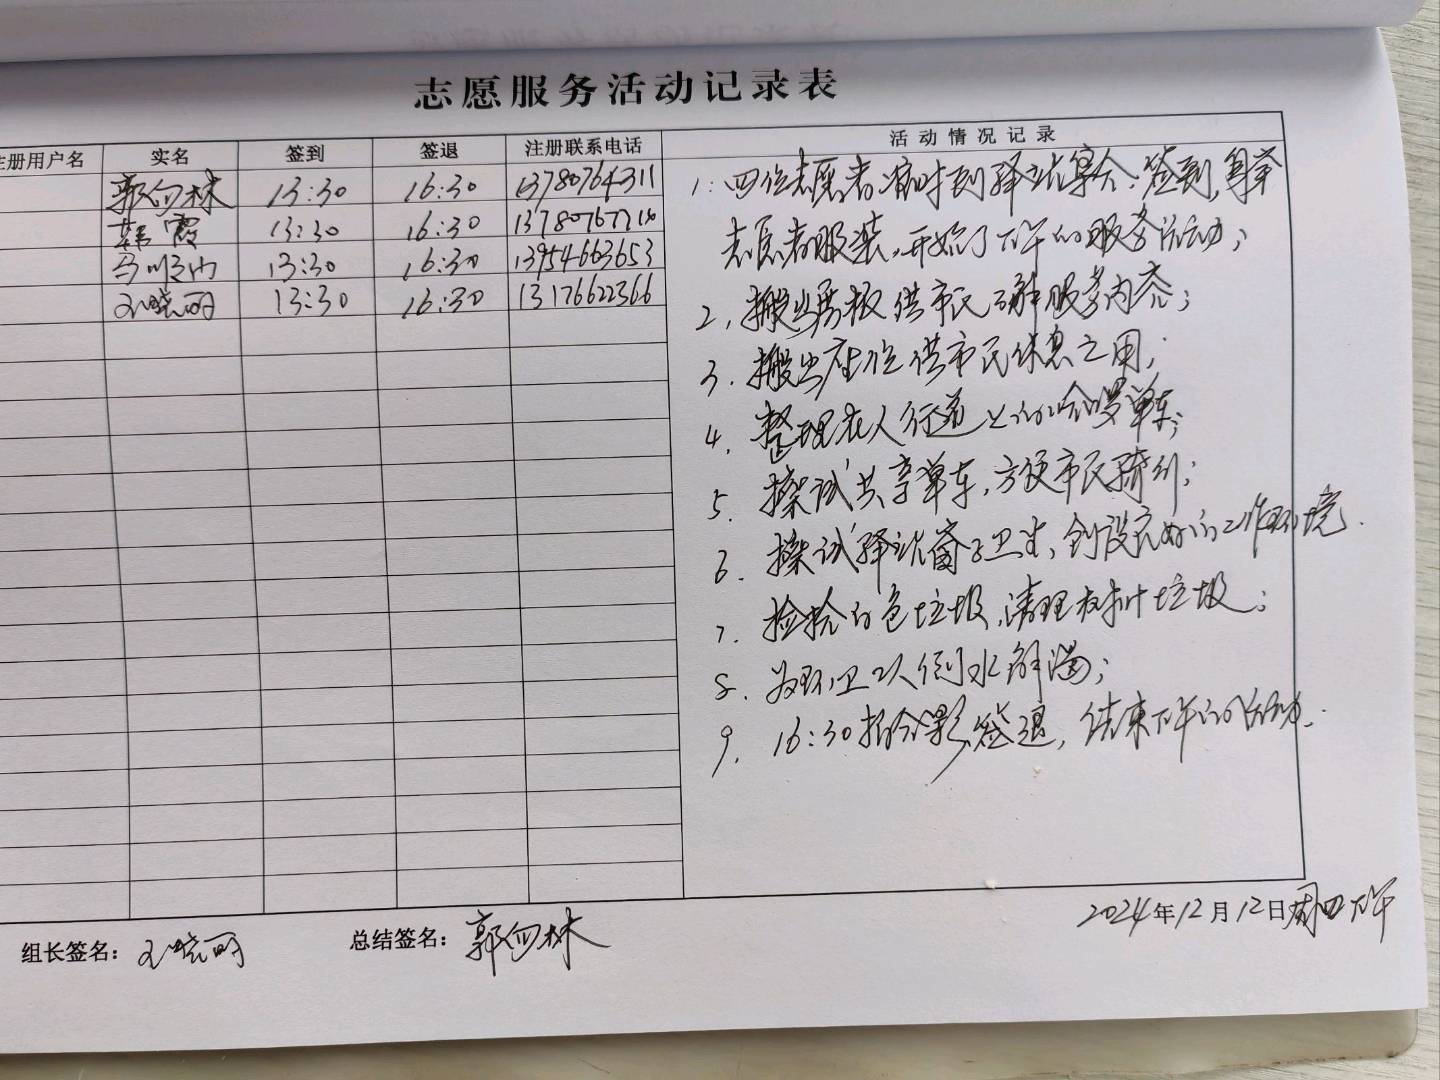 志愿服务活动记录表
注册用户名 实名 签到 签退 注册联系电话 活动情况记录
郭向林 13:30 16:30 13780764311
韩霞 13:30 16:30
13:30 16:30 13954663653
王晓丽 13:30 16:30 13176622366
1.四位志愿者准时到驿站集合、签到,身穿
志愿者服装,开始了下午的服务活动;
2,搬出展板供市民了解服务内容;
3.搬出座位供市民休息之用;
4.整理在人行道上的哈啰单车;
5.擦试共享单车,方便市民骑行;
6.擦试驿站窗子卫生,创设良好的工作环境.
7.捡拾白色垃圾,清理树叶垃圾;
8.为环卫工人倒水解渴;
9.16:30拍合影,签退,结束下午的活动.
2024年12月12日周四下午
组长签名:王晓丽 总结签名:郭向林